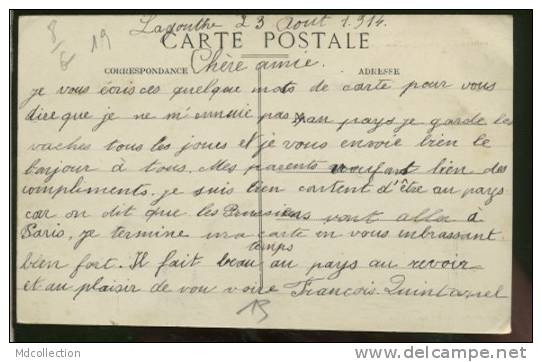 8/6 19
Lagouthe 23 Aout 1914.
CARTE POSTALE
CORRESPONDANCE Chère amie. ADRESSE
je vous écris ces quelque mots de carte pour vous
dire que je ne m'ennuie pas au pays je garde les
vaches tous les jours et je vous envoie bien le
bonjour à tous. Mes parents vous font bien des
compliments. je suis bien content d'être au pays
car on dit que les Prussiens vont aller à
Paris. je termine ma carte en vous embrassant
bien fort. Il fait beau temps au pays au revoir
et au plaisir de vou voire François Quintarnel
13
MDCollection
www.delcampe.net